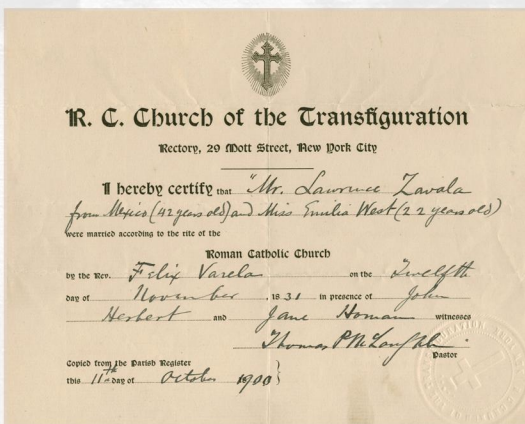 R. C. Church of the Transfiguration
Rectory, 29 Mott Street, New York City
I hereby certify that "Mr. Lawrence Zavala
from Mexico (42 years old) and Miss Emilia West (22 years old)
were married according to the rite of the
Roman Catholic Church
by the Rev. Felix Varela on the Twelfth
day of November, 1831 in presence of John
Herbert and Jane Homan witnesses
Thomas P McLaughlin
Pastor
Copied from the Parish Register
this 11th day of October 1900